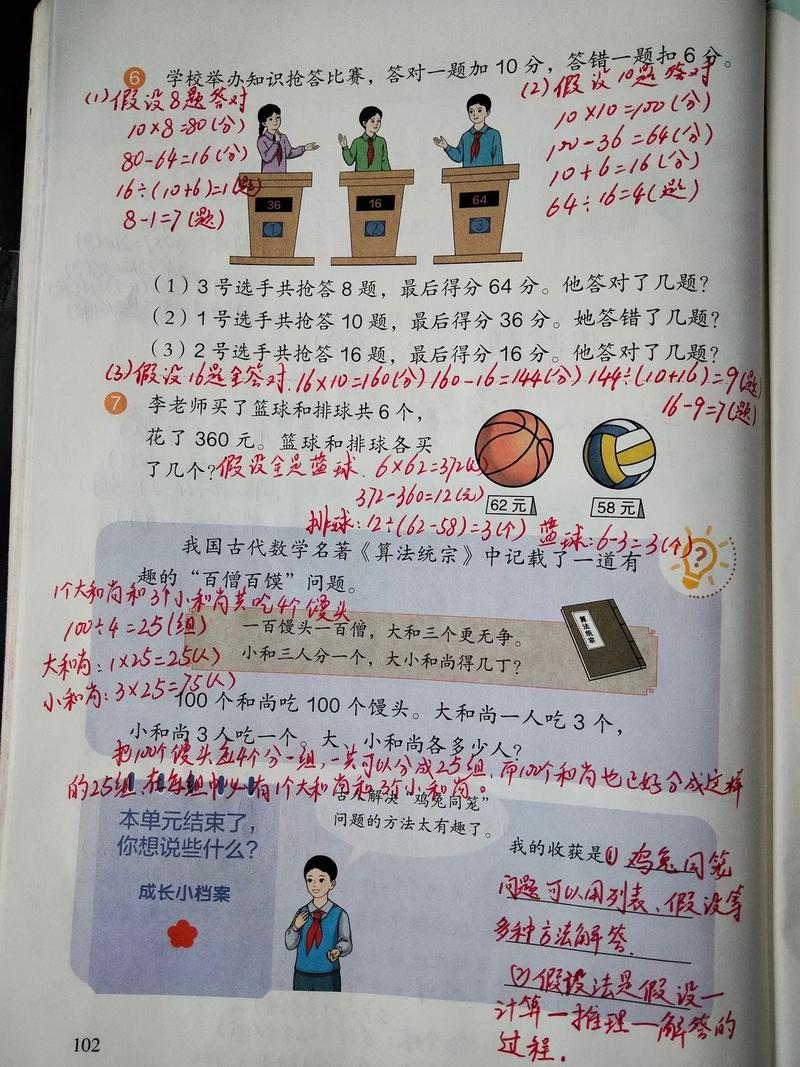 6 学校举办知识抢答比赛，答对一题加 10 分，答错一题扣 6 分。
(1) 假设8题答对
10×8=80(分)
80-64=16(分)
16÷(10+6)=1(题)
8-1=7(题)
(2) 假设10题答对
10×10=100(分)
100-36=64(分)
10+6=16(分)
64÷16=4(题)
36
16
64
1
2
3
（1）3 号选手共抢答 8 题，最后得分 64 分。他答对了几题？
（2）1 号选手共抢答 10 题，最后得分 36 分。她答错了几题？
（3）2 号选手共抢答 16 题，最后得分 16 分。他答对了几题？
(3) 假设16题全答对. 16×10=160(分) 160-16=144(分) 144÷(10+16)=9(题)
16-9=7(题)
7 李老师买了篮球和排球共 6 个，
花了 360 元。篮球和排球各买
了几个？假设全是篮球. 6×62=372(元)
372-360=12(元)
62 元
58 元
排球：12÷(62-58)=3(个) 篮球：6-3=3(个)
我国古代数学名著《算法统宗》中记载了一道有
趣的“百僧百馍”问题。
1个大和尚和3个小和尚共吃4个馒头
100÷4=25(组)
大和尚：1×25=25(人)
小和尚：3×25=75(人)
一百馒头一百僧，大和三个更无争。
小和三人分一个，大小和尚得几丁？
算法统宗
100 个和尚吃 100 个馒头。大和尚一人吃 3 个，
小和尚 3 人吃一个。大、小和尚各多少人？
把100个馒头每4个分一组，一共可以分成25组，而100个和尚也正好分成这样
的25组，在每组中 有1个大和尚和3个小和尚。
本单元结束了，
你想说些什么？
成长小档案
古人解决“鸡兔同笼”
问题的方法太有趣了。
我的收获是 ① 鸡兔同笼
问题可以用列表、假设等
多种方法解答.
(2) 假设法是假设一
计算一推理一解答的
过程.
102